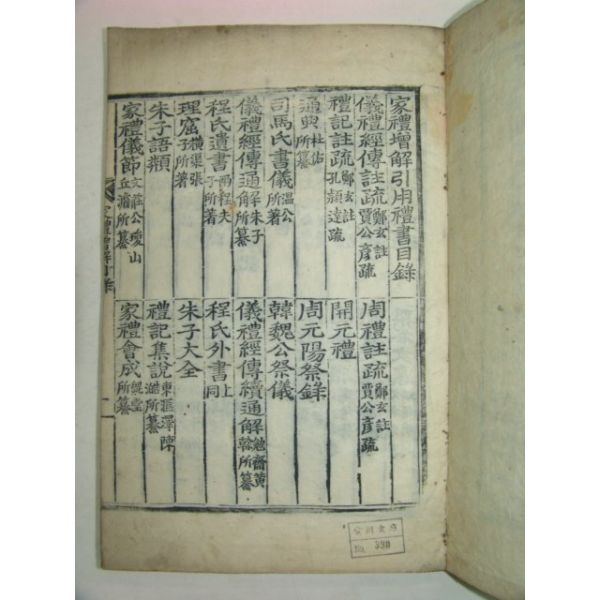 家禮增解引用禮書目錄
儀禮經傳註疏 鄭玄註 賈公彦疏
周禮註疏 鄭玄註 賈公彦疏
禮記註疏 鄭玄註 孔穎達疏
開元禮
通典 杜佑所纂
周元陽祭錄
司馬氏書儀 溫公所著
韓魏公祭儀
儀禮經傳通解 朱子所纂
儀禮經傳續通解 勉齋黃榦所纂
程氏遺書 兩程夫子所著
程氏外書 上同
理窟 橫渠張子所著
朱子大全
朱子語類
禮記集說 東匯澤陳澔所纂
家禮儀節 文莊公瓊山丘濬所纂
家禮會成 堂所纂
家禮增解目錄
No. 390